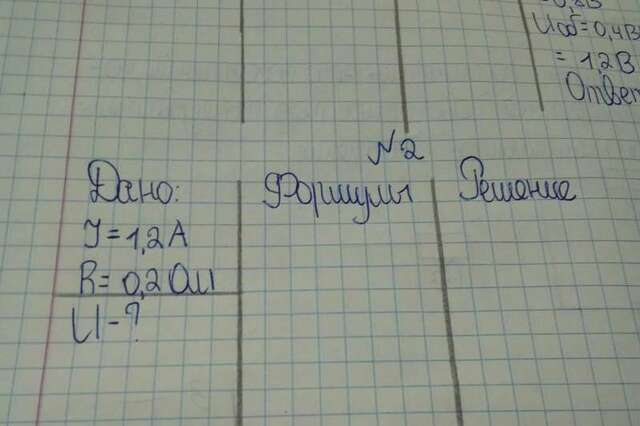 Uоб=0,4В
=1,2В
Ответ
№2
Дано:
Формулы
Решение
J=1,2А
R=0,2Ом
U-?